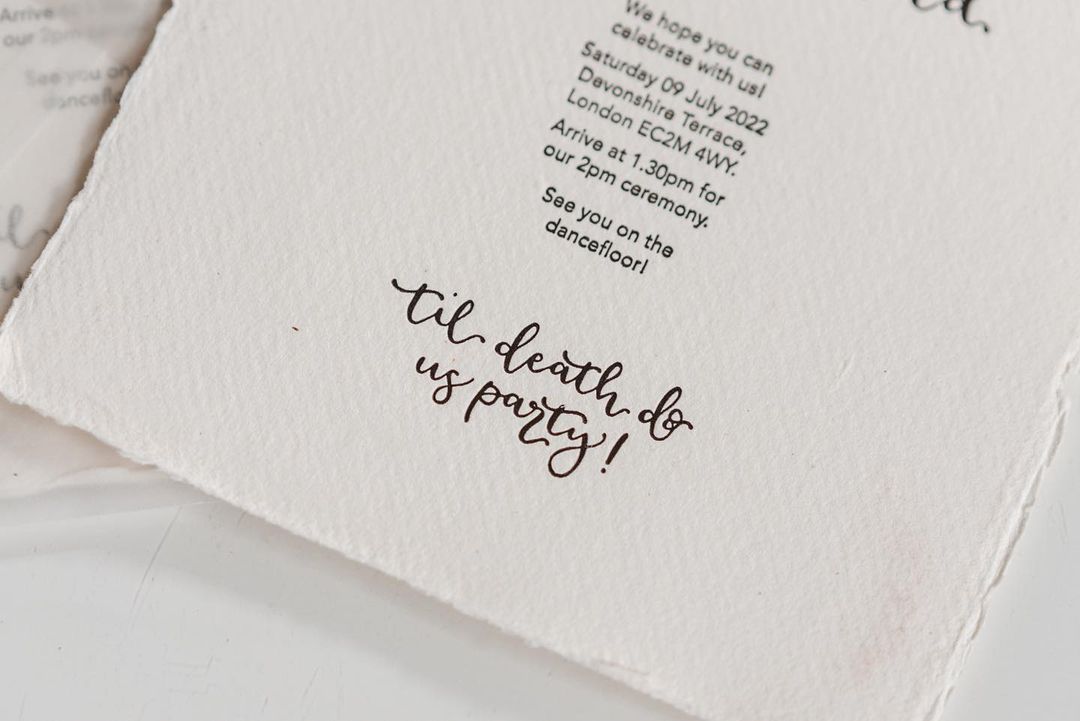 We hope you can
celebrate with us!
Saturday 09 July 2022
Devonshire Terrace,
London EC2M 4WY.
Arrive at 1.30pm for
our 2pm ceremony.
See you on the
dancefloor!
'til death do
us party!
Arrive
our 2pm
See you on
dancefl